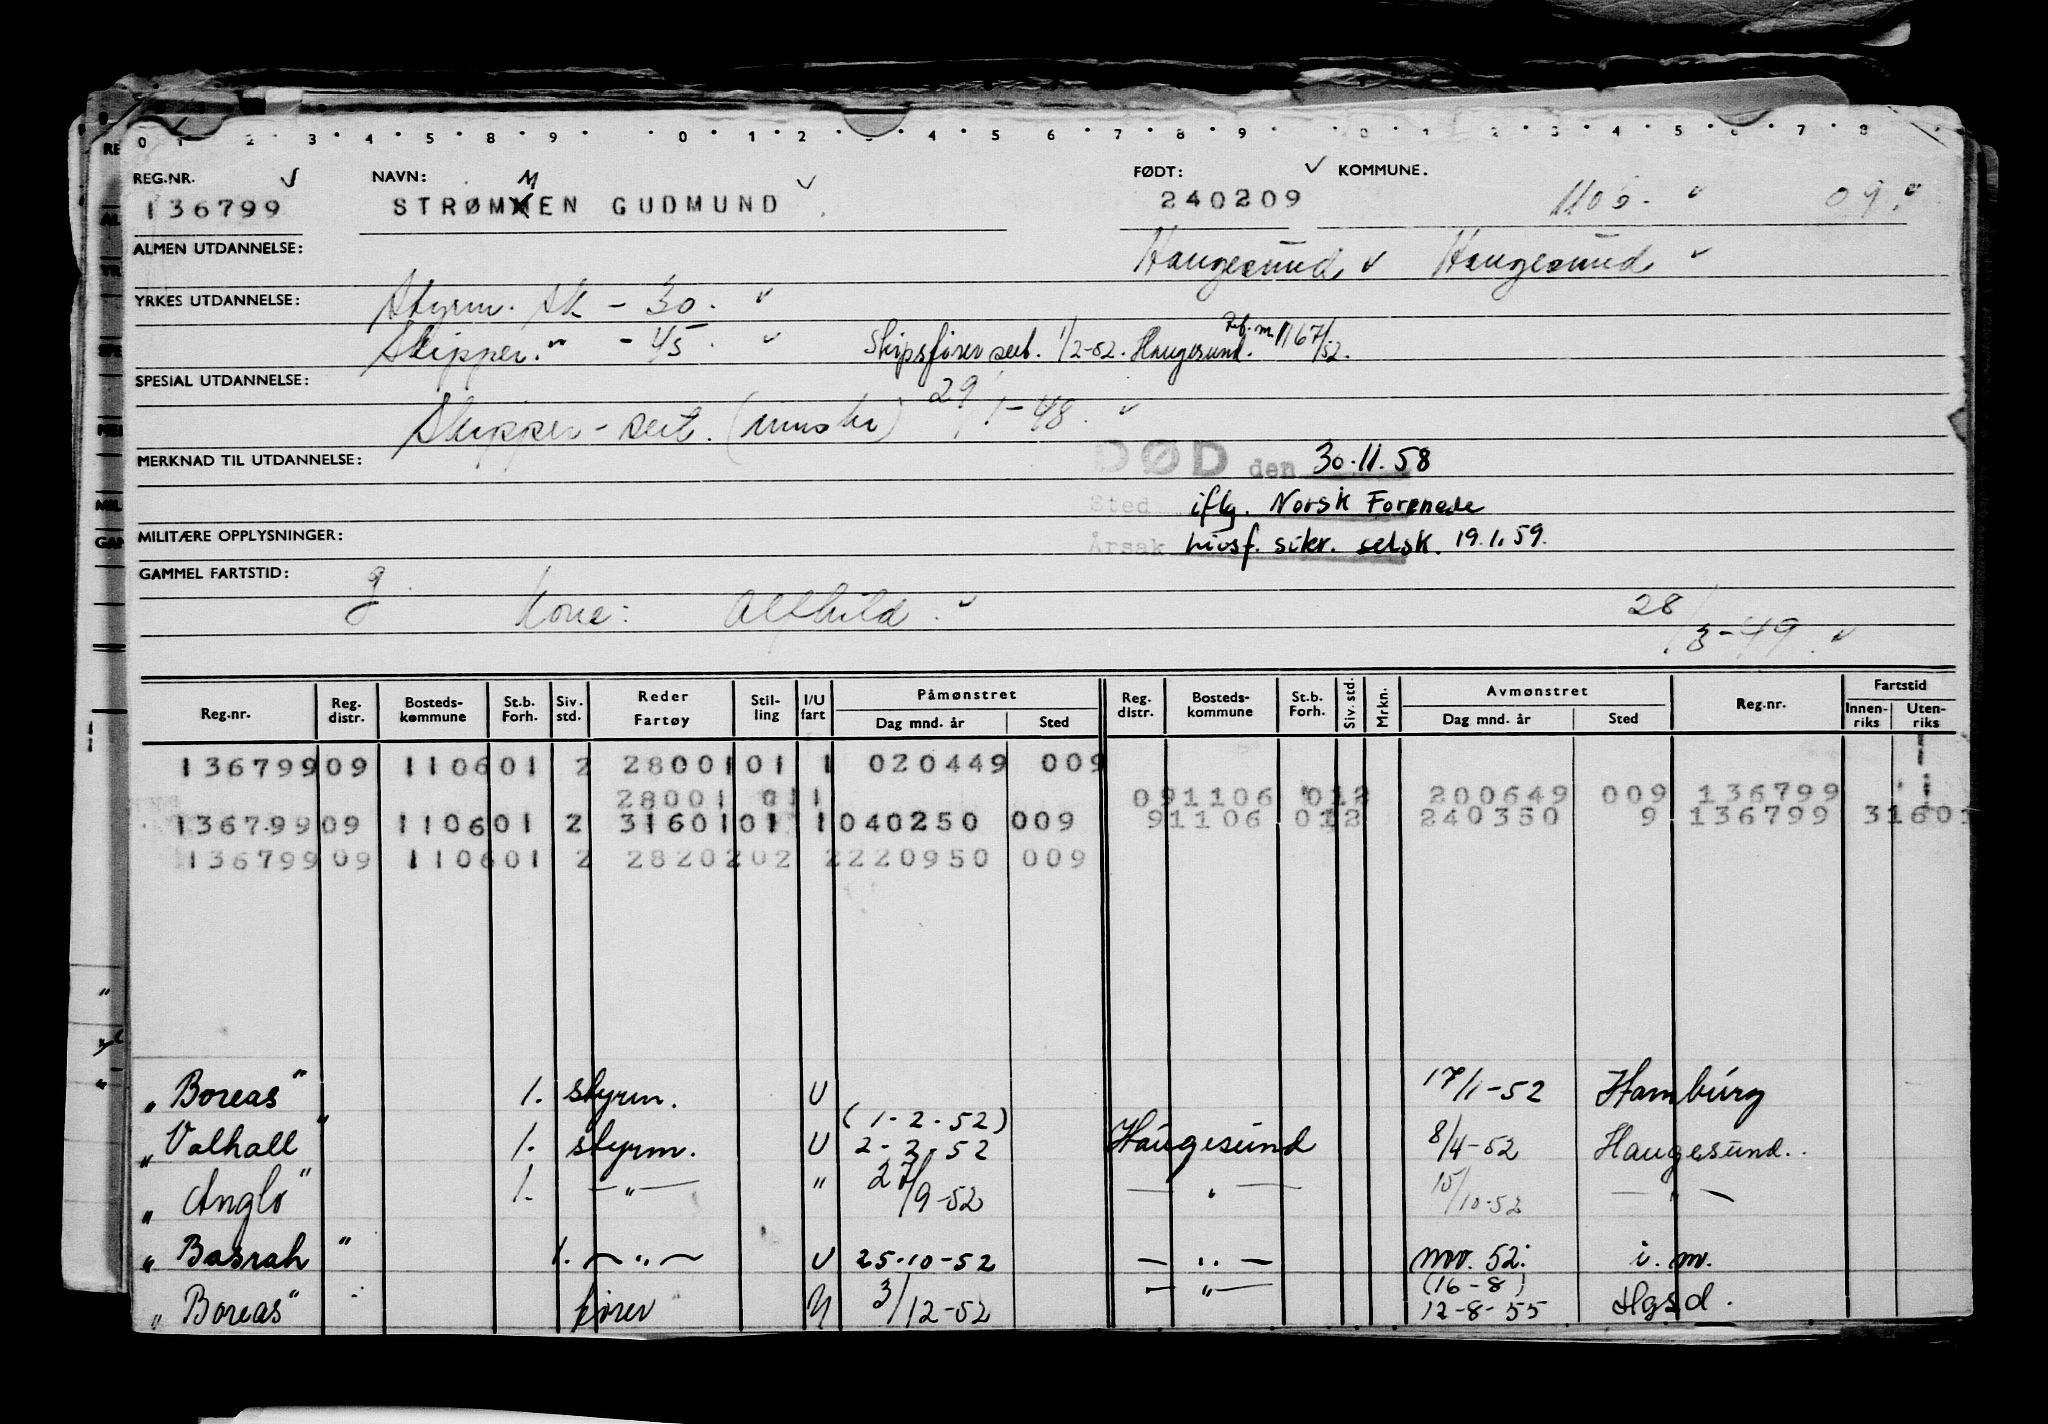 0 1 2 3 4 5 8 9 0 1 2 3 4 5 6 7 8 9 0 1 2 3 4 5 6 7 8
REG.NR. NAVN: FØDT: KOMMUNE.
136799 STRØMMEN GUDMUND 240209 1106. 09.
ALMEN UTDANNELSE: Haugesund Haugesund
YRKES UTDANNELSE: Styrm. sk - 30.
Skipper. " - 45. Skipsfører sert. 1/2-52. Haugesund. 1167/52.
SPESIAL UTDANNELSE:
Skipper - sert. 29/1-48.
MERKNAD TIL UTDANNELSE: DØD den 30.11.58
Sted iflg. Norsk Forenede
MILITÆRE OPPLYSNINGER: Årsak Livsf. sikr. selsk. 19.1.59.
GAMMEL FARTSTID: g. Kone: Alfhild. 28/3-49.
Reg.nr. Reg. distr. Bosteds-kommune St.b. Forh. Siv. std. Reder Fartøy Stil-ling I/U fart Påmønstret Dag mnd. år Sted Reg. distr. Bosteds-kommune St.b. Forh. Siv. std. Mrkn. Avmønstret Dag mnd. år Sted Reg.nr. Fartstid Innen-riks Uten-riks
136799 09 1106 01 2 28001 01 1 020449 009
28001 011 091106 012 200649 009 136799
136799 09 1106 01 2 31601 01 1 040250 009 91106 012 240350 9 136799 31601
136799 09 1106 01 2 28202 02 2 220950 009
"Boreas" 1. styrm. U 17/1-52 Hamburg
(1-2-52)
"Valhall" 1. styrm. U 2-2-52 Haugesund 8/4-52 Haugesund.
"Anglo" 1. — " — " 27/9-52 — " — 15/10-52 — " —
"Basrah" 1. — " — U 25-10-52 — " — nov. 52. i. m.
(16-8)
"Boreas" fører U 3/12-52 — " — 12-8-55 Hgsd.